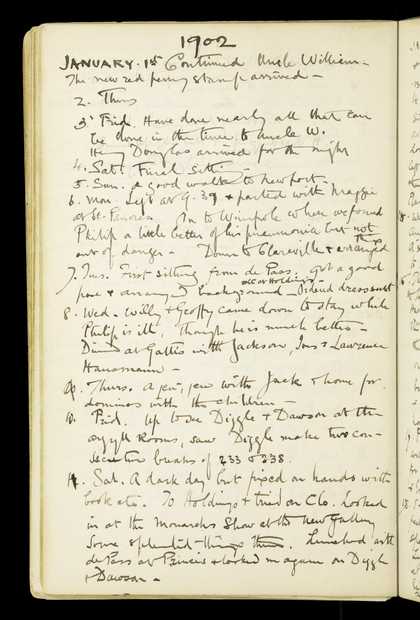 1902
JANUARY. 1st Continued Uncle William -
The new red penny stamp arrived -
2. Thurs
3. Frid. Have done nearly all that can
be done in the time to Uncle W.
Henry Douglas arrived for the night
4. Sat. Final sitting -
5. Sun. A good walk to Newport -
6. Mon. Left at 9.39 & parted with Maggie
at St. Pancras. On to Wimpole where we found
Philip a little better of his pneumonia but not
out of danger - Down to Clareville & arranged
7. Tues. First sitting from de Pass. Got a good
pose & arranged background - Ordered dress suit
at Holdings -
8. Wed. Willy & Geoffy came down to stay while
Philip is ill, though he is much better -
Dined at Gattis with Jackson, Ions & Lawrence
Hansmann -
9. Thurs. A jaw, jaw with Jack & home for
dominos with the children -
10. Frid. Up to see Diggle & Dawson at the
Argyll Rooms, saw Diggle make two con-
secutive breaks of 233 & 238.
11. Sat. A dark day but pegged on hands with
book etc. To Holdings & tried on Clo. Looked
in at the Monarchs Show at the New Gallery
Some splendid things there. Lunched with
de Pass at Princes & looked in again on Diggle
& Dawson -